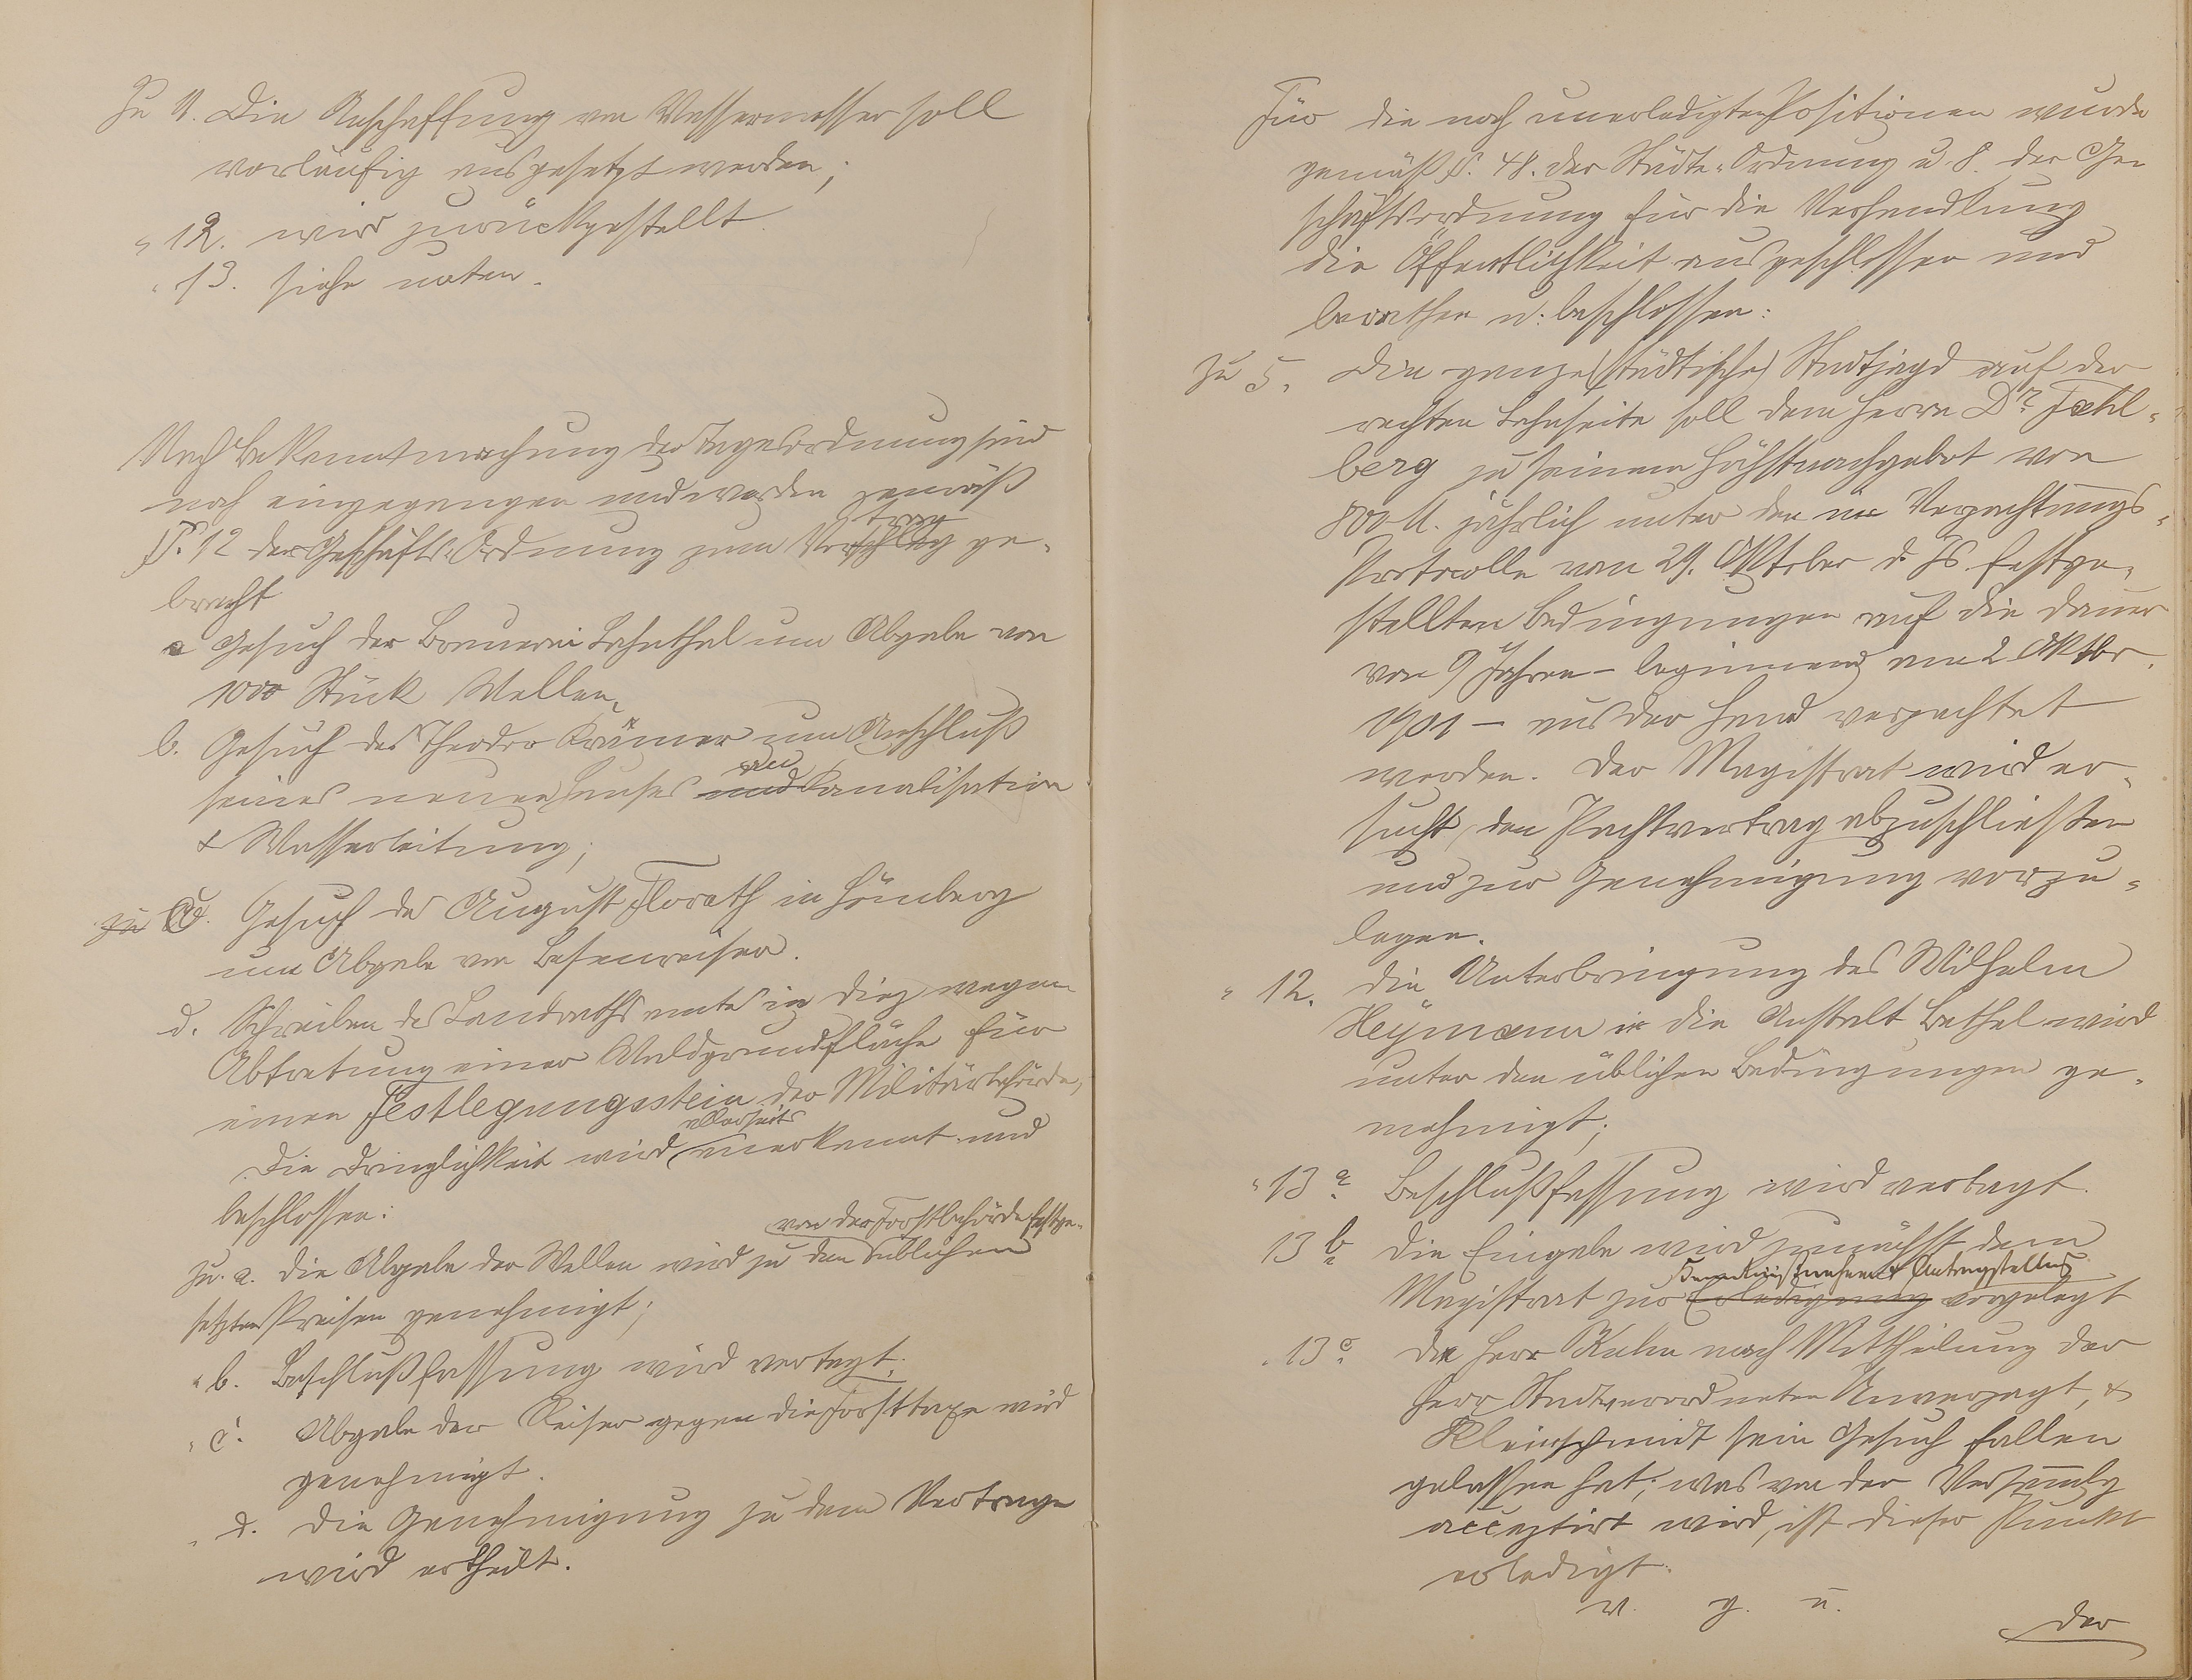 Zu 11. Die Anschaffung von Wassermesser soll
vorläufig ausgesetzt werden;
" 12. wird zurückgestellt.
" 13. siehe unten.
Nach Bekanntmachung der Tagesordnung sind
noch eingegangen und werden gemäß
§. 12 der Geschäfts-Ordnung zum Vorschlag trag ge-
bracht
a Gesuch der Brauerei Lahnthal um Abgabe von
1000 Stück Wellen,
b. Gesuch des Theodor Krämer um Anschluß
seines neuen Hauses und an Kanalisation
& Wasserleitung;
zu c. Gesuch des August Florath in Hömberg
um Abgabe von Besenreiser.
d. Schreiben des Landrathsamtes in Diez wegen
Abtretung einer Waldgrundfläche für
einen Festlegungsstein der Militärbehörde,
Die Dringlichkeit wird allerseits anerkannt und
beschlossen:
zu. a. die Abgabe der Wellen wird zu den üblichen von der Forstbehörde festge-
setzten Preisen genehmigt;
" b. Beschlußfassung wird vertagt;
" c. Abgabe der Reiser gegen die Forsttaxe wird
genehmigt.
" d. die Genehmigung zu dem Vertrage
wird ertheilt.
Für die noch unerledigten Positionen wurde
gemäß §. 48. der Städte-Ordnung u 8. der Ge-
schäftsordnung für die Verhandlung
die Öffentlichkeit ausgeschlossen und
berathen u. beschlossen:
zu 5. Die ganze (städtische) Stadtjagd auf der
rechten Lahnseite soll dem Herrn Dr. Fahl-
berg zu seinem Höchstnachgebot von
800 M. jährlich unter den im Verpachtungs-
Protocolle vom 29. Oktober d. Js. festge-
stellten Bedingungen auf die Dauer
von 9 Jahren – beginnend am 2 Oktbr.
1901 – aus der Hand verpachtet
werden. Der Magistrat wird er-
sucht, den Pachtvertrag abzuschließen
und zur Genehmigung vorzu-
legen.
" 12. die Unterbringung des Wilhelm
Heymann in die Anstalt Bethel wird
unter den üblichen Bedingungen ge-
nehmigt;
" 13 a Beschlußfassung wird vertagt.
13 b die Eingabe wird zunächst dem
Magistrat zur Erledigung Kenntnißnahme & Antragstellung vorgelegt
" 13 c Da Herr Kuhn nach Mittheilung der
Herr Stadtverordneten Unverzagt, &
Kleinschmidt sein Gesuch fallen
gelassen hat; was von der Versamlg
acceptirt wird, ist dieser Punkt
erledigt.
v. g. u.
Der